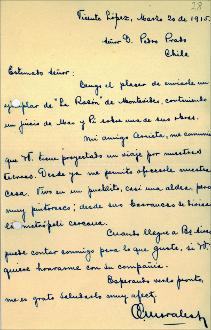 28
Vicente López, Marzo 20 de 1915.
Señor D. Pedro Prado
Chile
Estimado señor:
Tengo el placer de enviarle un
ejemplar de "La Razón" de Montevideo, conteniendo
un juicio de Mas y Pi sobre una de sus obras.
Mi amigo Arrieta, me comunica
que Vd. tiene proyectado un viaje por nuestras
tierras. Desde ya me permito ofrecerle nuestra
casa. Vivo en un pueblito, casi una aldea, pero
muy pintoresco; desde sus barrancas se divisa
la metrópoli cercana.
Cuando llegue a Bs. Aires
puede contar conmigo para lo que guste, si Vd.
quiere honrarme con su compañía.
Esperando verlo pronto,
me es grato saludarlo muy afect.